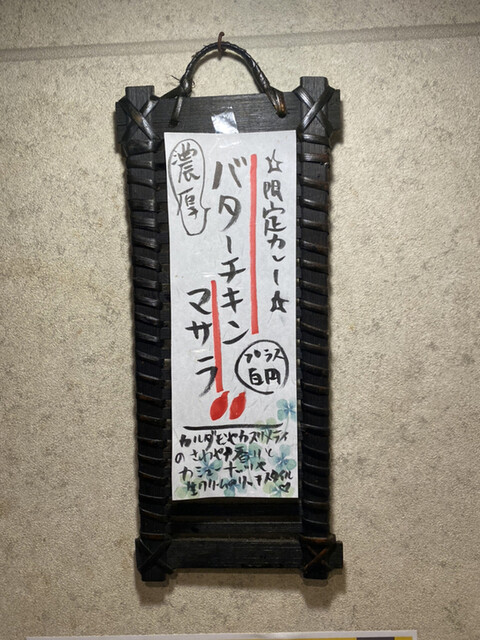 ☆限定カレー☆
濃厚
バターチキン
マサラ
プラス
百円
カルダモンやカスリメティ
のさわやかな香りと
カシューナッツや
生クリームのリッチスタイル♡